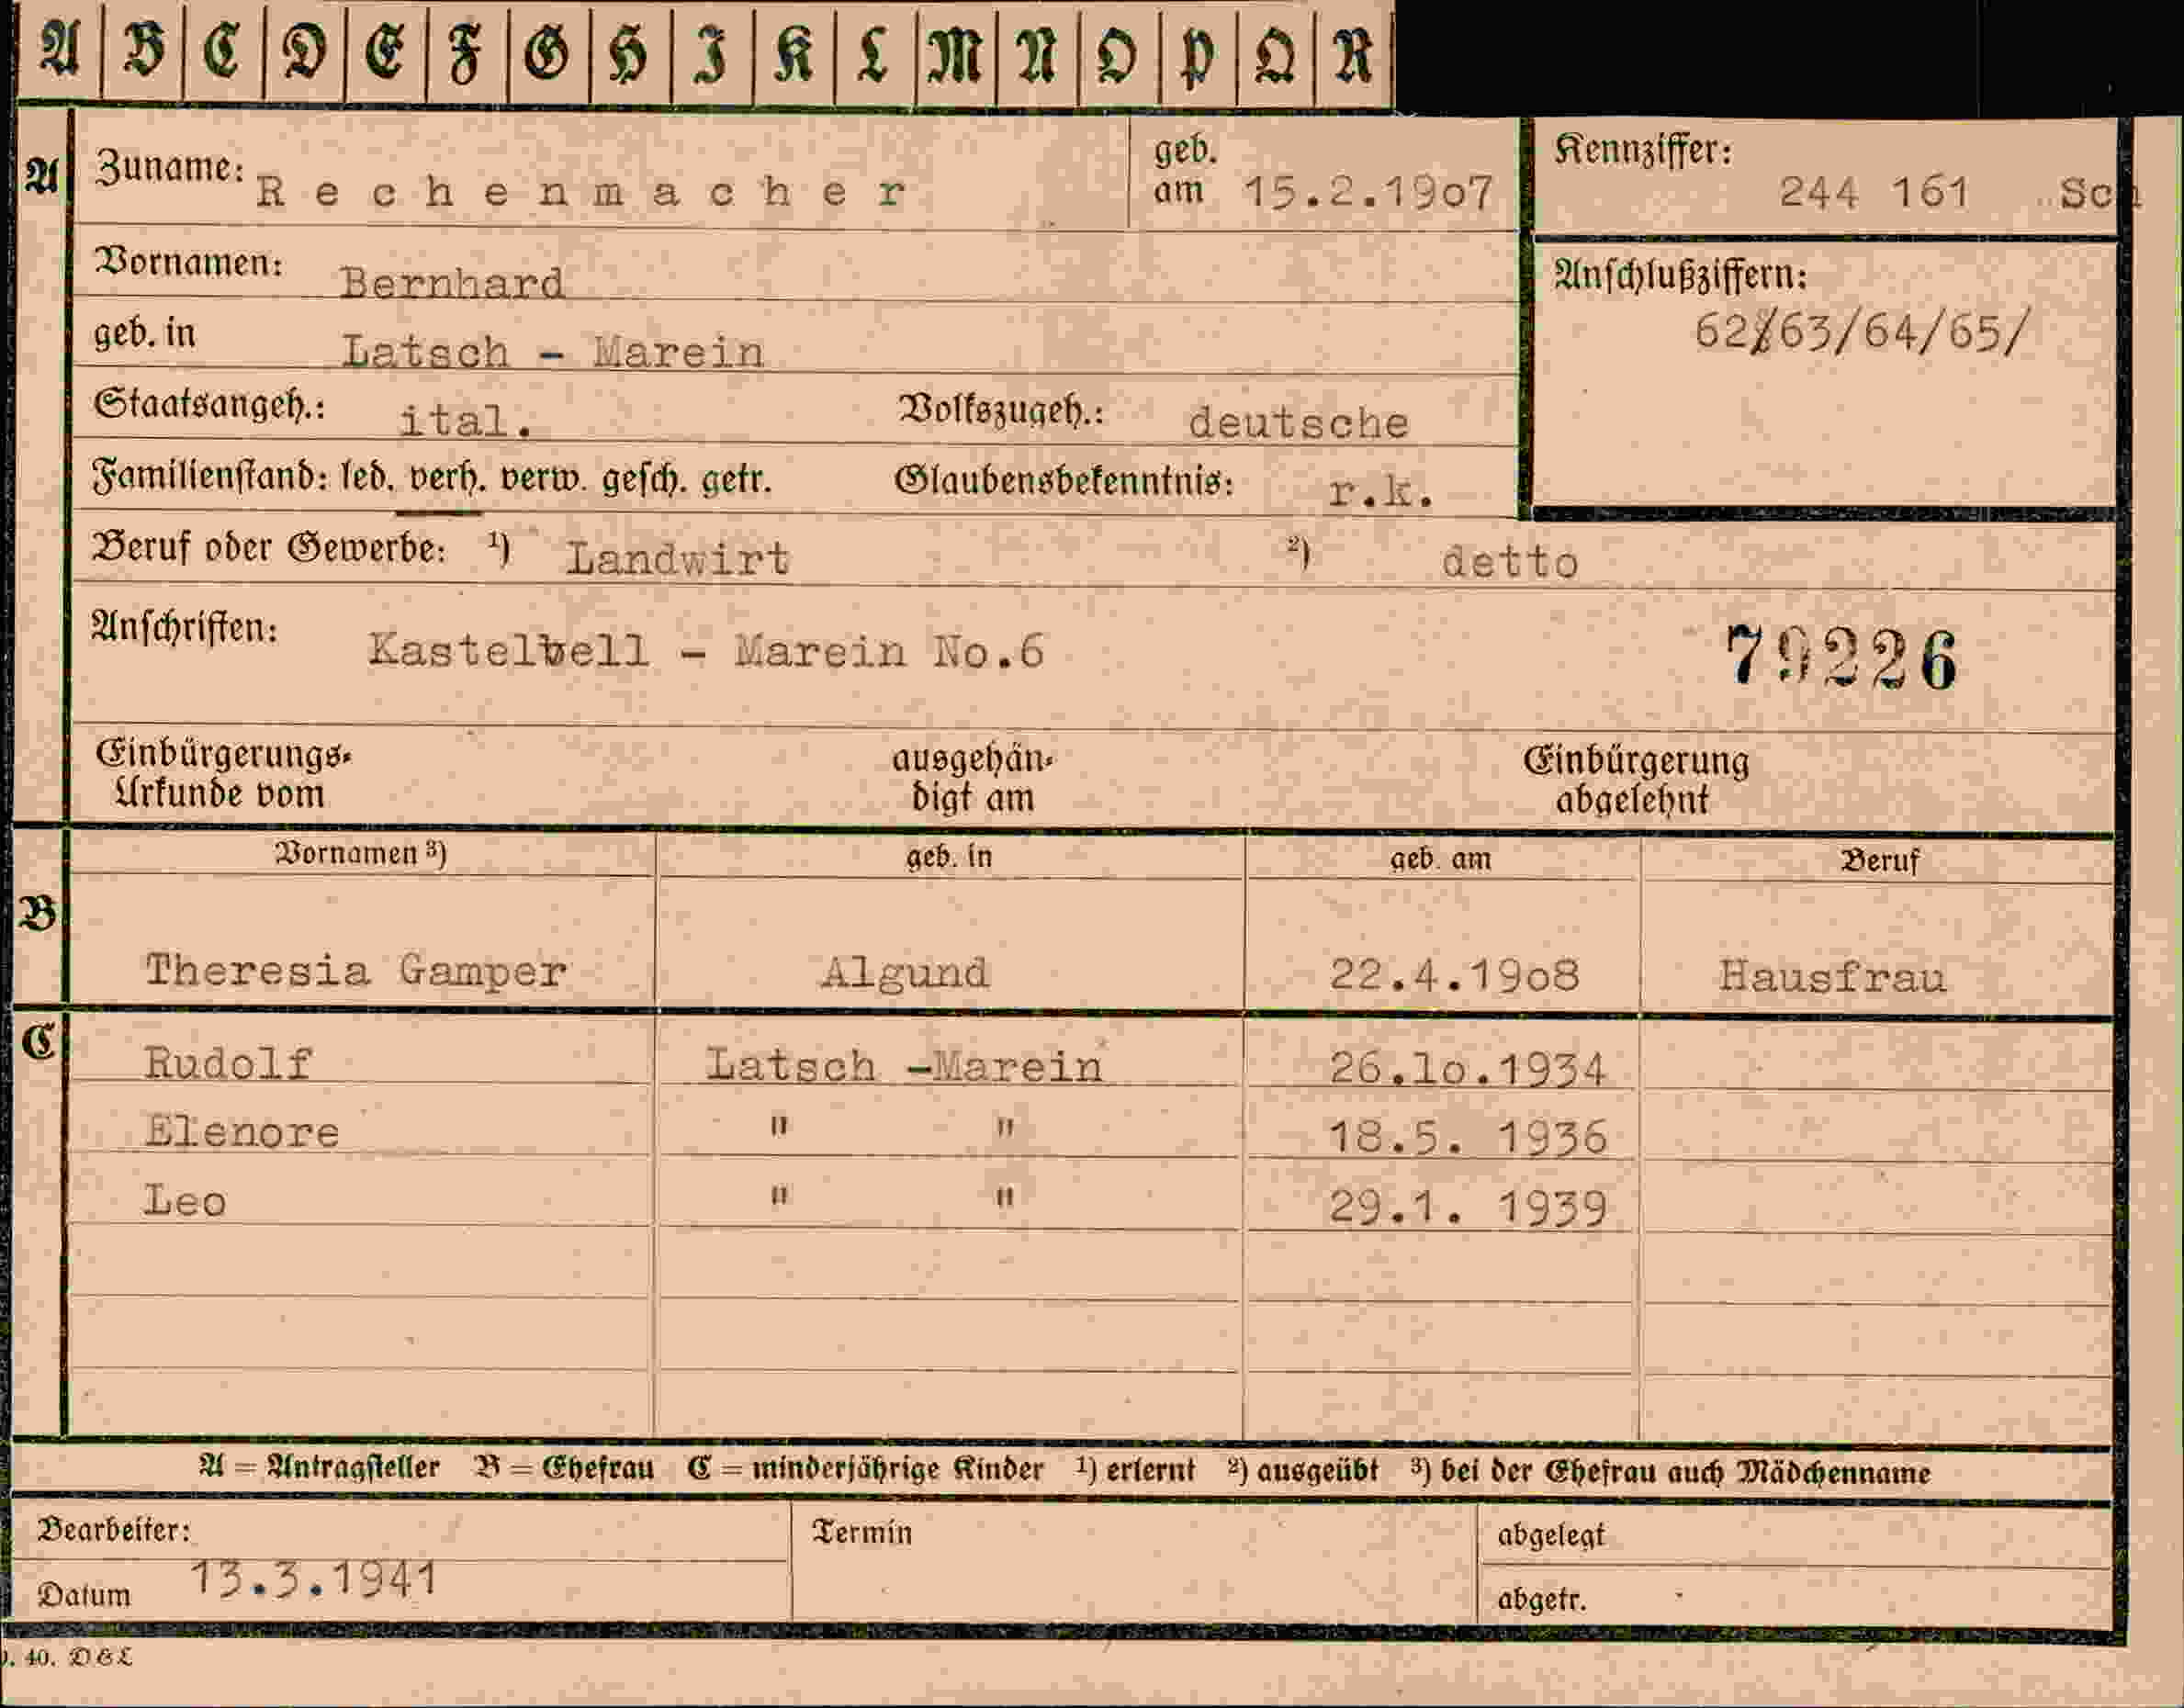 A B C D E F G H I K L M N O P Q R
A Zuname: Rechenmacher geb. am 15.2.19o7 Kennziffer: 244 161 Sch
Vornamen: Bernhard Anschlußziffern:
62/63/64/65/
geb. in Latsch - Marein
Staatsangeh.: ital. Volkszugeh.: deutsche
Familienstand: led. verh. verw. gesch. getr. Glaubensbekenntnis: r.k.
Beruf oder Gewerbe: 1) Landwirt 2) detto
Anschriften: Kastelbell - Marein No.6 79226
Einbürgerungs-Urkunde vom ausgehän-digt am Einbürgerung abgelehnt
Vornamen 3) geb. in geb. am Beruf
B Theresia Gamper Algund 22.4.19o8 Hausfrau
C Rudolf Latsch -Marein 26.1o.1934
Elenore " " 18.5. 1936
Leo " " 29.1. 1939
A = Antragsteller B = Ehefrau C = minderjährige Kinder 1) erlernt 2) ausgeübt 3) bei der Ehefrau auch Mädchenname
Bearbeiter: Termin abgelegt
Datum 13.3.1941 abgetr.
. 40. D&L